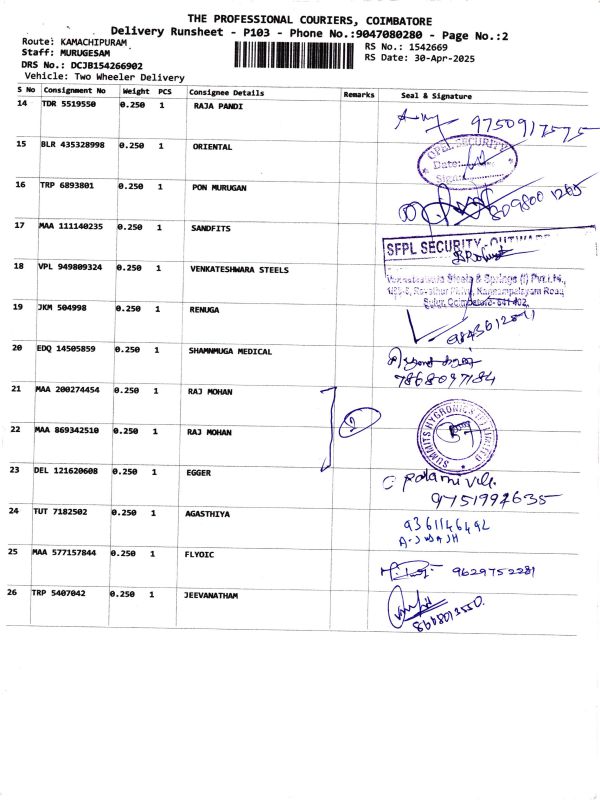 THE PROFESSIONAL COURIERS, COIMBATORE
Delivery Runsheet - P103 - Phone No.:9047080280 - Page No.:2
Route: KAMACHIPURAM
RS No.: 1542669
Staff: MURUGESAM
RS Date: 30-Apr-2025
DRS No.: DCJB154266902
Vehicle: Two Wheeler Delivery
S No Consignment No Weight PCS Consignee Details Remarks Seal & Signature
14 TDR 5519550 0.250 1 RAJA PANDI
9750917575
15 BLR 435328998 0.250 1 ORIENTAL
OPEL SECURITY
Date:
Sign:
16 TRP 6893801 0.250 1 PON MURUGAN
809800 1265
17 MAA 111140235 0.250 1 SANDFITS
SFPL SECURITY-OUTWARD
18 VPL 949809324 0.250 1 VENKATESHWARA STEELS
Venkateswara Steels & Springs (I) Pvt.Ltd.,
Sulur, Coimbatore-641 402.
19 JKM 504998 0.250 1 RENUGA
20 EDQ 14505859 0.250 1 SHAMNMUGA MEDICAL
7868097184
21 MAA 200274454 0.250 1 RAJ MOHAN
2
22 MAA 869342510 0.250 1 RAJ MOHAN
SUMMITS HYGRONICS PVT LIMITED
23 DEL 121620608 0.250 1 EGGER
Palanivel
9751997635
24 TUT 7182502 0.250 1 AGASTHIYA
9361146492
25 MAA 577157844 0.250 1 FLYOIC
9629752281
26 TRP 5407042 0.250 1 JEEVANATHAM